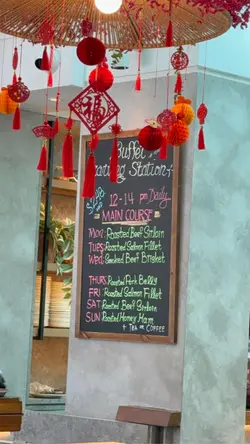 Buffet &
Carving Station
12-14 pm Daily
MAIN COURSE
MON: Roasted Beef Sirloin
TUES: Roasted Salmon Fillet
WED: Smoked Beef Brisket
THURS: Roasted Pork Belly
FRI: Roasted Salmon Fillet
SAT: Roasted Beef Sirloin
SUN: Roasted Honey Ham
+ TEA OR COFFEE
福